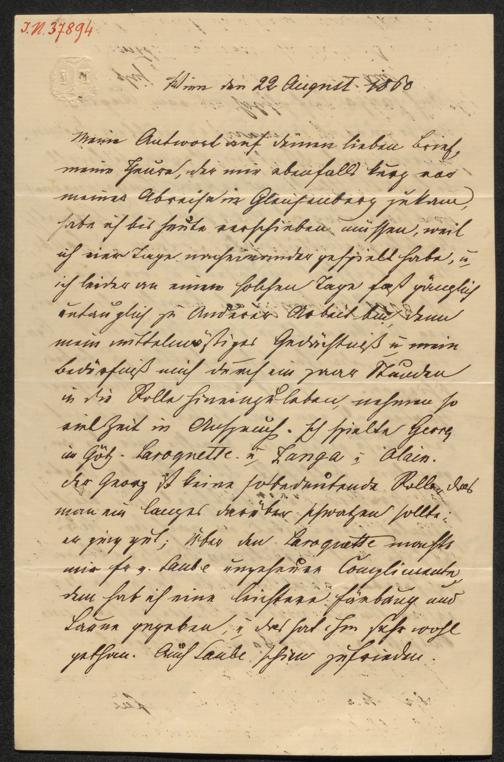 J.N. 37894
Wien den 22 August 1860
Meine Antwort auf deinen lieben Brief,
meine Theure, der mir ebenfalls kurz vor
meiner Abreise in Gleichenberg zukam,
habe ich bis heute verschieben müssen, weil
ich vier Tage nacheinander gespielt habe, u.
ich leider an einem solchen Tage fast gänzlich
untauglich zu anderer Arbeit bin, denn
mein mittelmäßiges Gedächtniß u mein
Bedürfniß mich durch ein paar Stunden
in die Rolle hineinzuleben, nehmen so
viel Zeit in Anspruch. Ich spielte Georg
in Götz. Laroquette. u. Zanga u Alain.
Der Georg ist keine so bedeutende Rolle, das
man ein langes darüber schwatzen sollte;
er ging gut; über den Laroquette machte
mir Fr v. Laube ungeheure Complimente,
dem hab ich eine leichtere Färbung und
Laune gegeben, u das hat ihm sehr wohl
gethan. Auch Laube schien zufrieden.